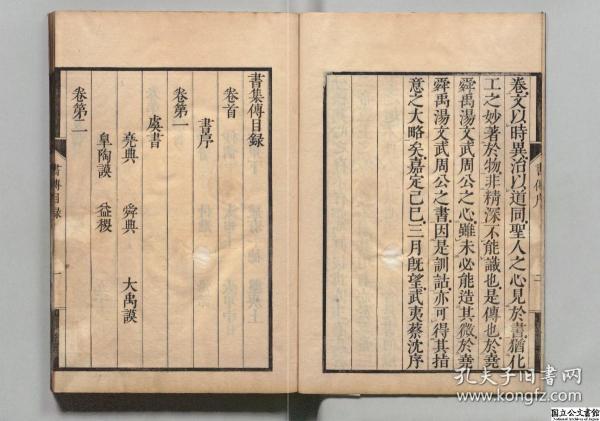 卷文以時異治以道同聖人之心見於書猶化
工之妙著於物非精深不能識也是傳也於堯
舜禹湯文武周公之心雖未必能造其微於堯
舜禹湯文武周公之書因是訓詁亦可得其指
意之大略矣嘉定己巳三月既望武夷蔡沈序
書傳序
二
書集傳目錄
卷首
書序
卷第一
虞書
堯典 舜典 大禹謨
皐陶謨 益稷
卷第二
書傳目錄
一
孔夫子旧书网
www.kongfz.com
国立公文書館
National Archives of Japan